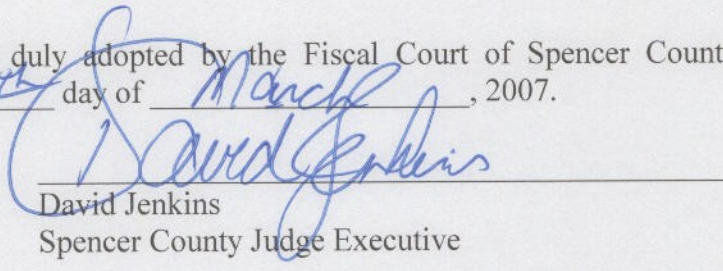 duly adopted by the Fiscal Court of Spencer Count
th day of March, 2007.
David Jenkins
David Jenkins
Spencer County Judge Executive